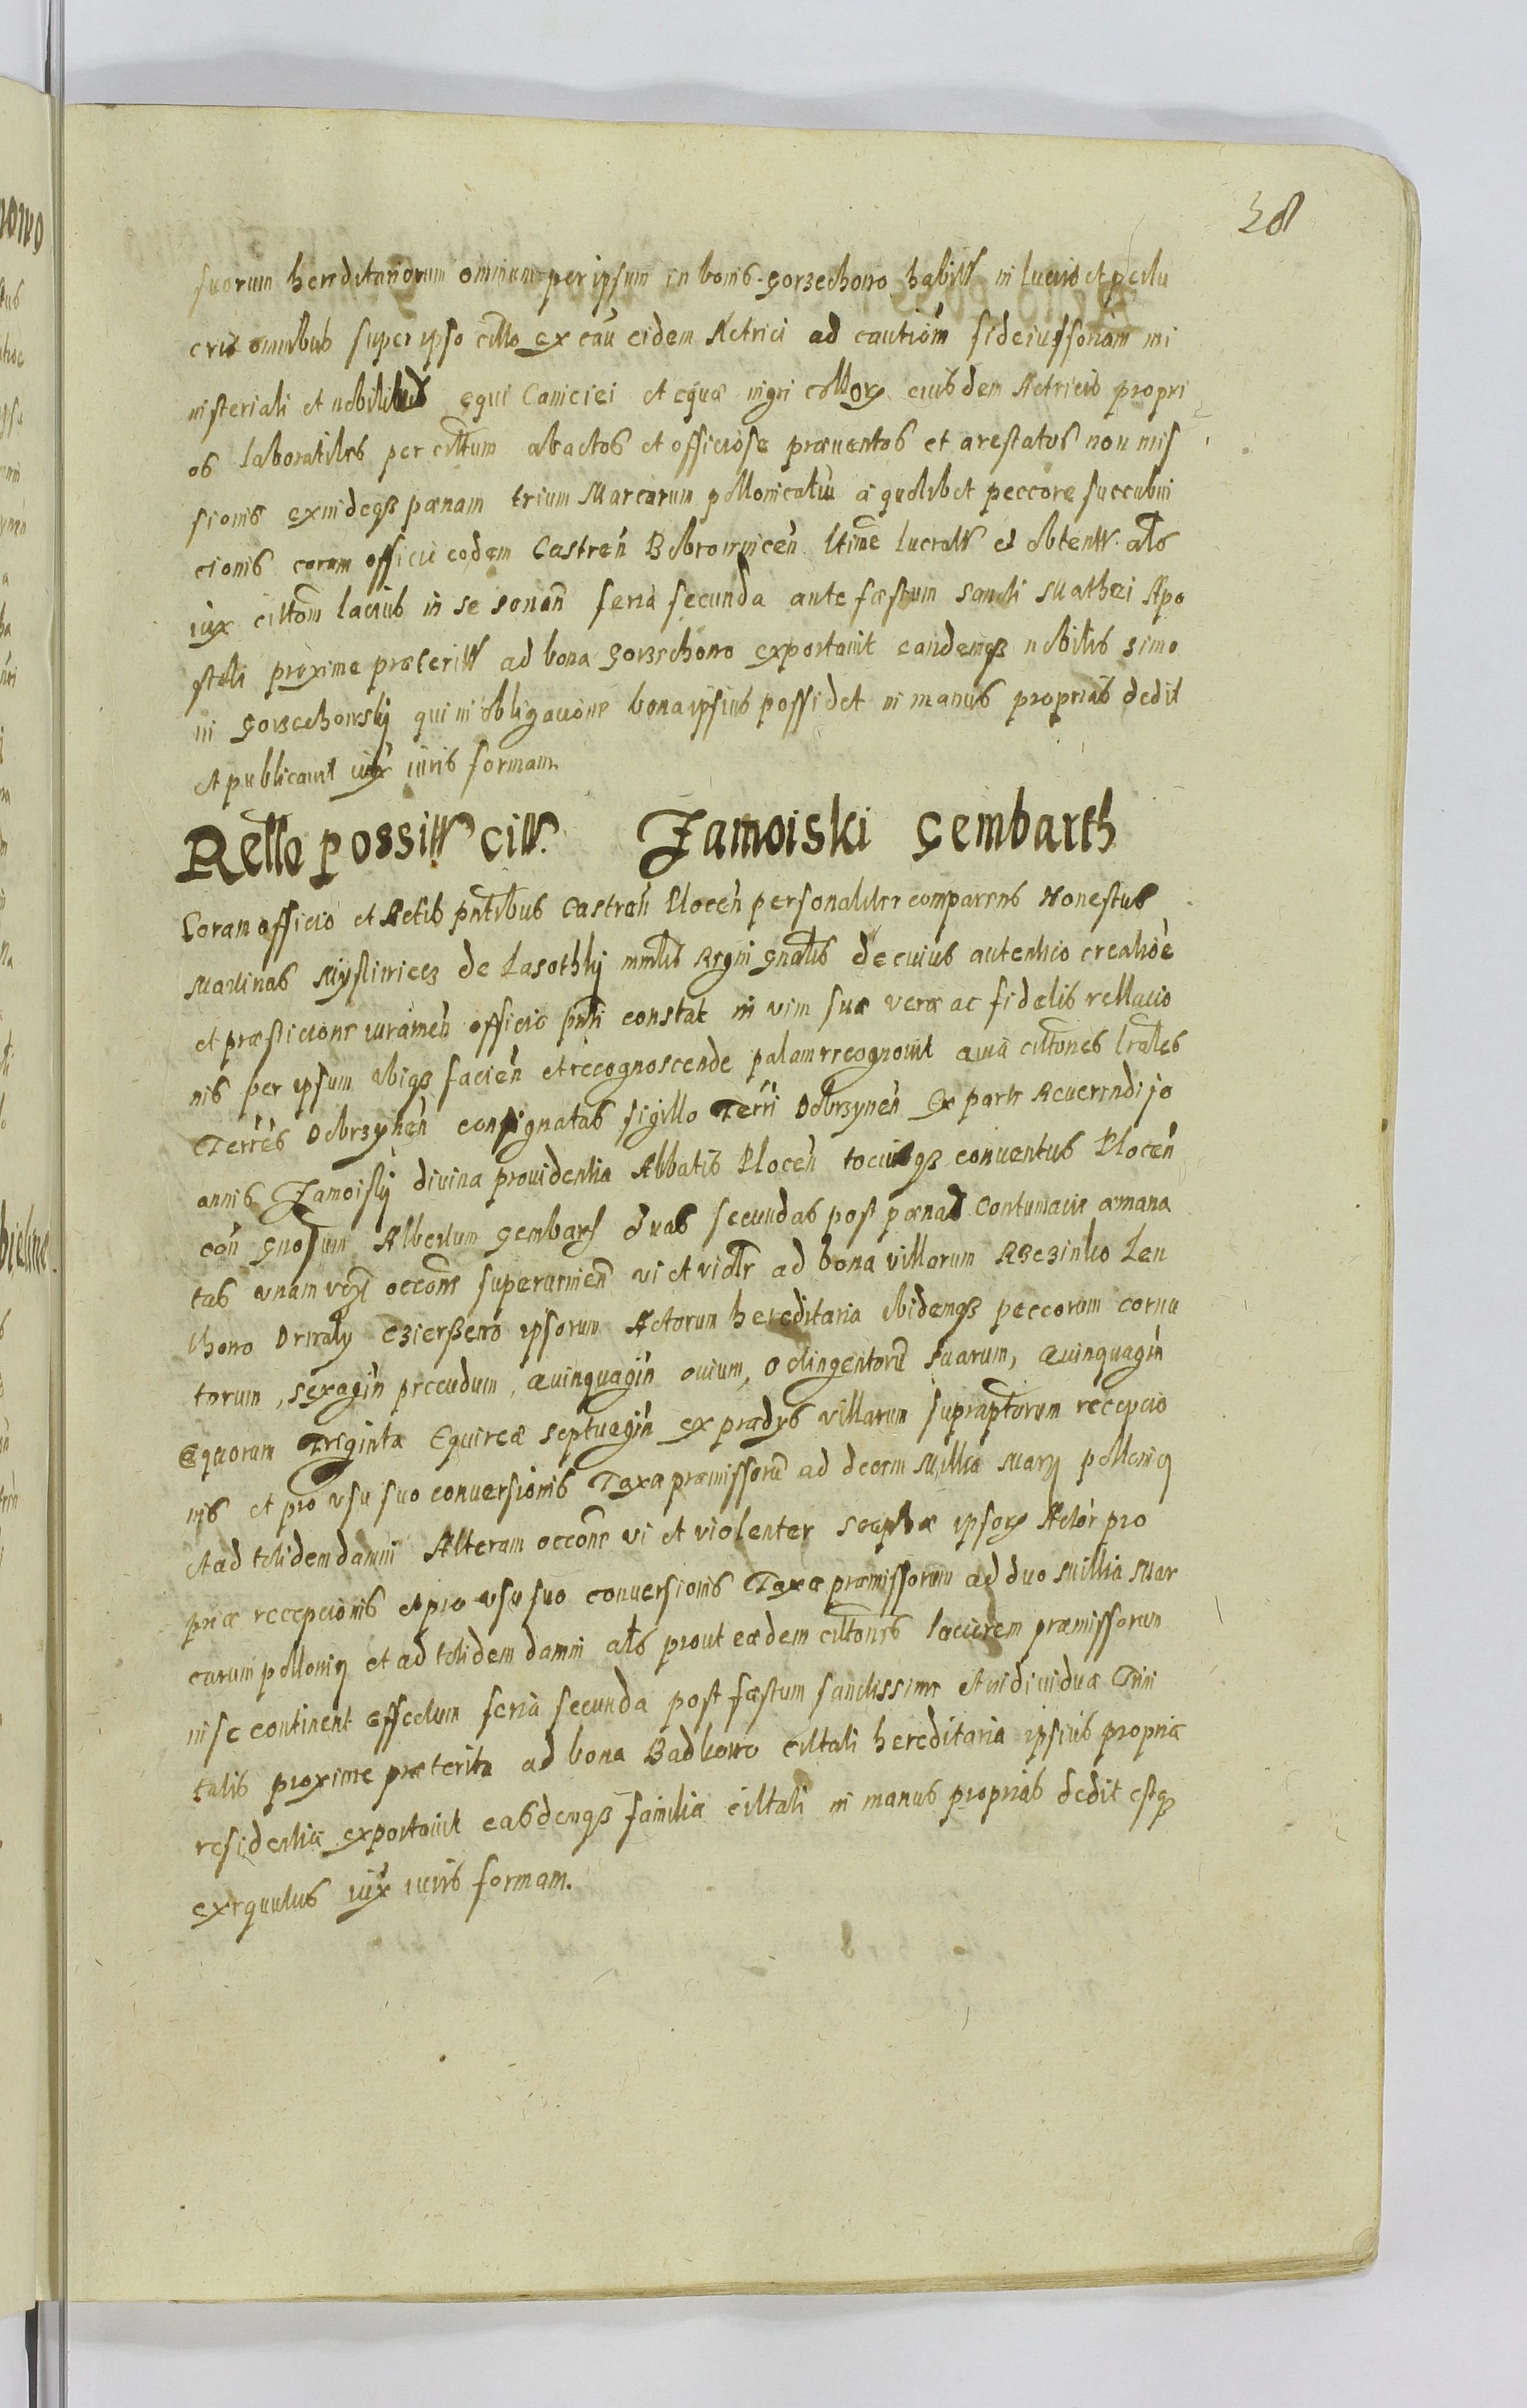 28
suorum hereditariorum omnium per ipsum in bonis Gorzechowo habitt in lucris et perlu
cris omnibus super ipso citto ex cau eidem Actrici ad cautiom fideiussoriam mi
nisteriali et nobilibus equi Caniciei et equæ nigri collorꝭ eiusdem Actricis propri
os laboratiles per cittum abactos et officiose præuentos et arestatos non mis
sionis exindeqꝫ pœnam trium Marcarum pollonicaliu a quolibet peccore succubui
cionis coram officio eodem Castren Bobrownicen ltime lucratt et obtentt als
iux cittom lacius in se sonan feria secunda ante fæstum Sancti Mathei Apo
stoli proxime præteritt ad bona Gorzechowo exportauit eandemqꝫ nobilis Simo
ni Gorzechowskij qui in obligacione bona ipsius possidet in manus proprias dedit
et publicauit iux iuris formam.
Rello possitt citt. Zamoiski Gembarth
Coram officio et Actis pntibus Castren Plocen personaliter comparens Honestus
Martinus de Lasothkij mnlis Regni gnalis de cuius autentico creatioe
et præsticione iuramen officio pnti constat in vim suæ veræ ac fidelis rellacio
nis per ipsum ubiqꝫ facien et recognoscende palam recognouit quia cittiones lrales
Terres Dobrzynen consignatas sigillo Terri Dobrzynen Ex parte Reuerendi Jo
annis Zamoiskij diuina prouidentia Abbatis Plocen tociusqꝫ conuentus Plocen
con gnosum Albertum Gembarth duas secundas post pœnas Contumaciæ æmana
tas vnam occone superuenien vi et violr ad bona villarum Len
thowo ipsorum Actorum hereditaria ibidemqꝫ peccorum cornu
torum, sexagin peccudum, quinquagin ouium, suarum, quinquagin
Equorum Triginta Equireæ septuagin ex prædys villarum supraptorum recepcio
nis et pro vsu suo conuersionis Taxa præmissoru ad decem Millia Marꝭ pollonicꝭ
et ad totidem damni Alteram occone vi et violenter ipsorꝭ Actor pro
priæ recepcionis et pro vsu suo conuersionis Taxæ præmissorum ad duo Millia Mar
carum pollonicꝭ et ad totidem damni als prout eædem cittones laciorem præmissorum
in se continent effectum feria secunda post fæstum sanctissimæ et indiuiduæ Trini
tatis proxime præterita ad bona Badkowo cittati hereditaria ipsius propriæ
residentiæ exportauit easdemqꝫ familiæ cittati in manus proprias dedit estqꝫ
exequutus iux iuris formam.